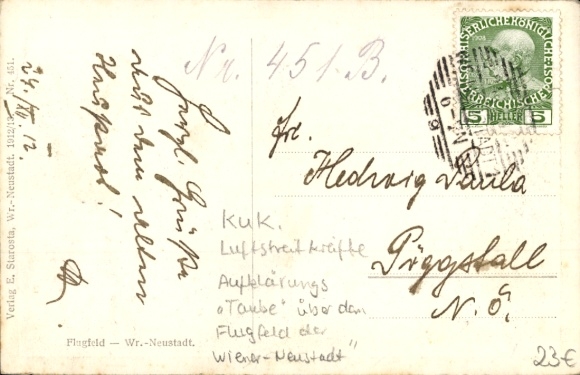 Nr. 451.B.
24. XII. 12.
Herzl. Grüße
aus dem alten
Verlag E. Starosta, Wr.-Neustadt. 1912/13. Nr. 451.
KAISERLICHE KÖNIGLICHE
ÖSTERREICHISCHE
1908
5 HELLER 5
Frl.
Hedwig Paula
Pöggstall
N. Ö.
KuK.
Luftstreitkräfte
Aufklärungs
„Taube" über dem
Flugfeld der
Wiener-Neustadt"
Flugfeld — Wr.-Neustadt.
23€